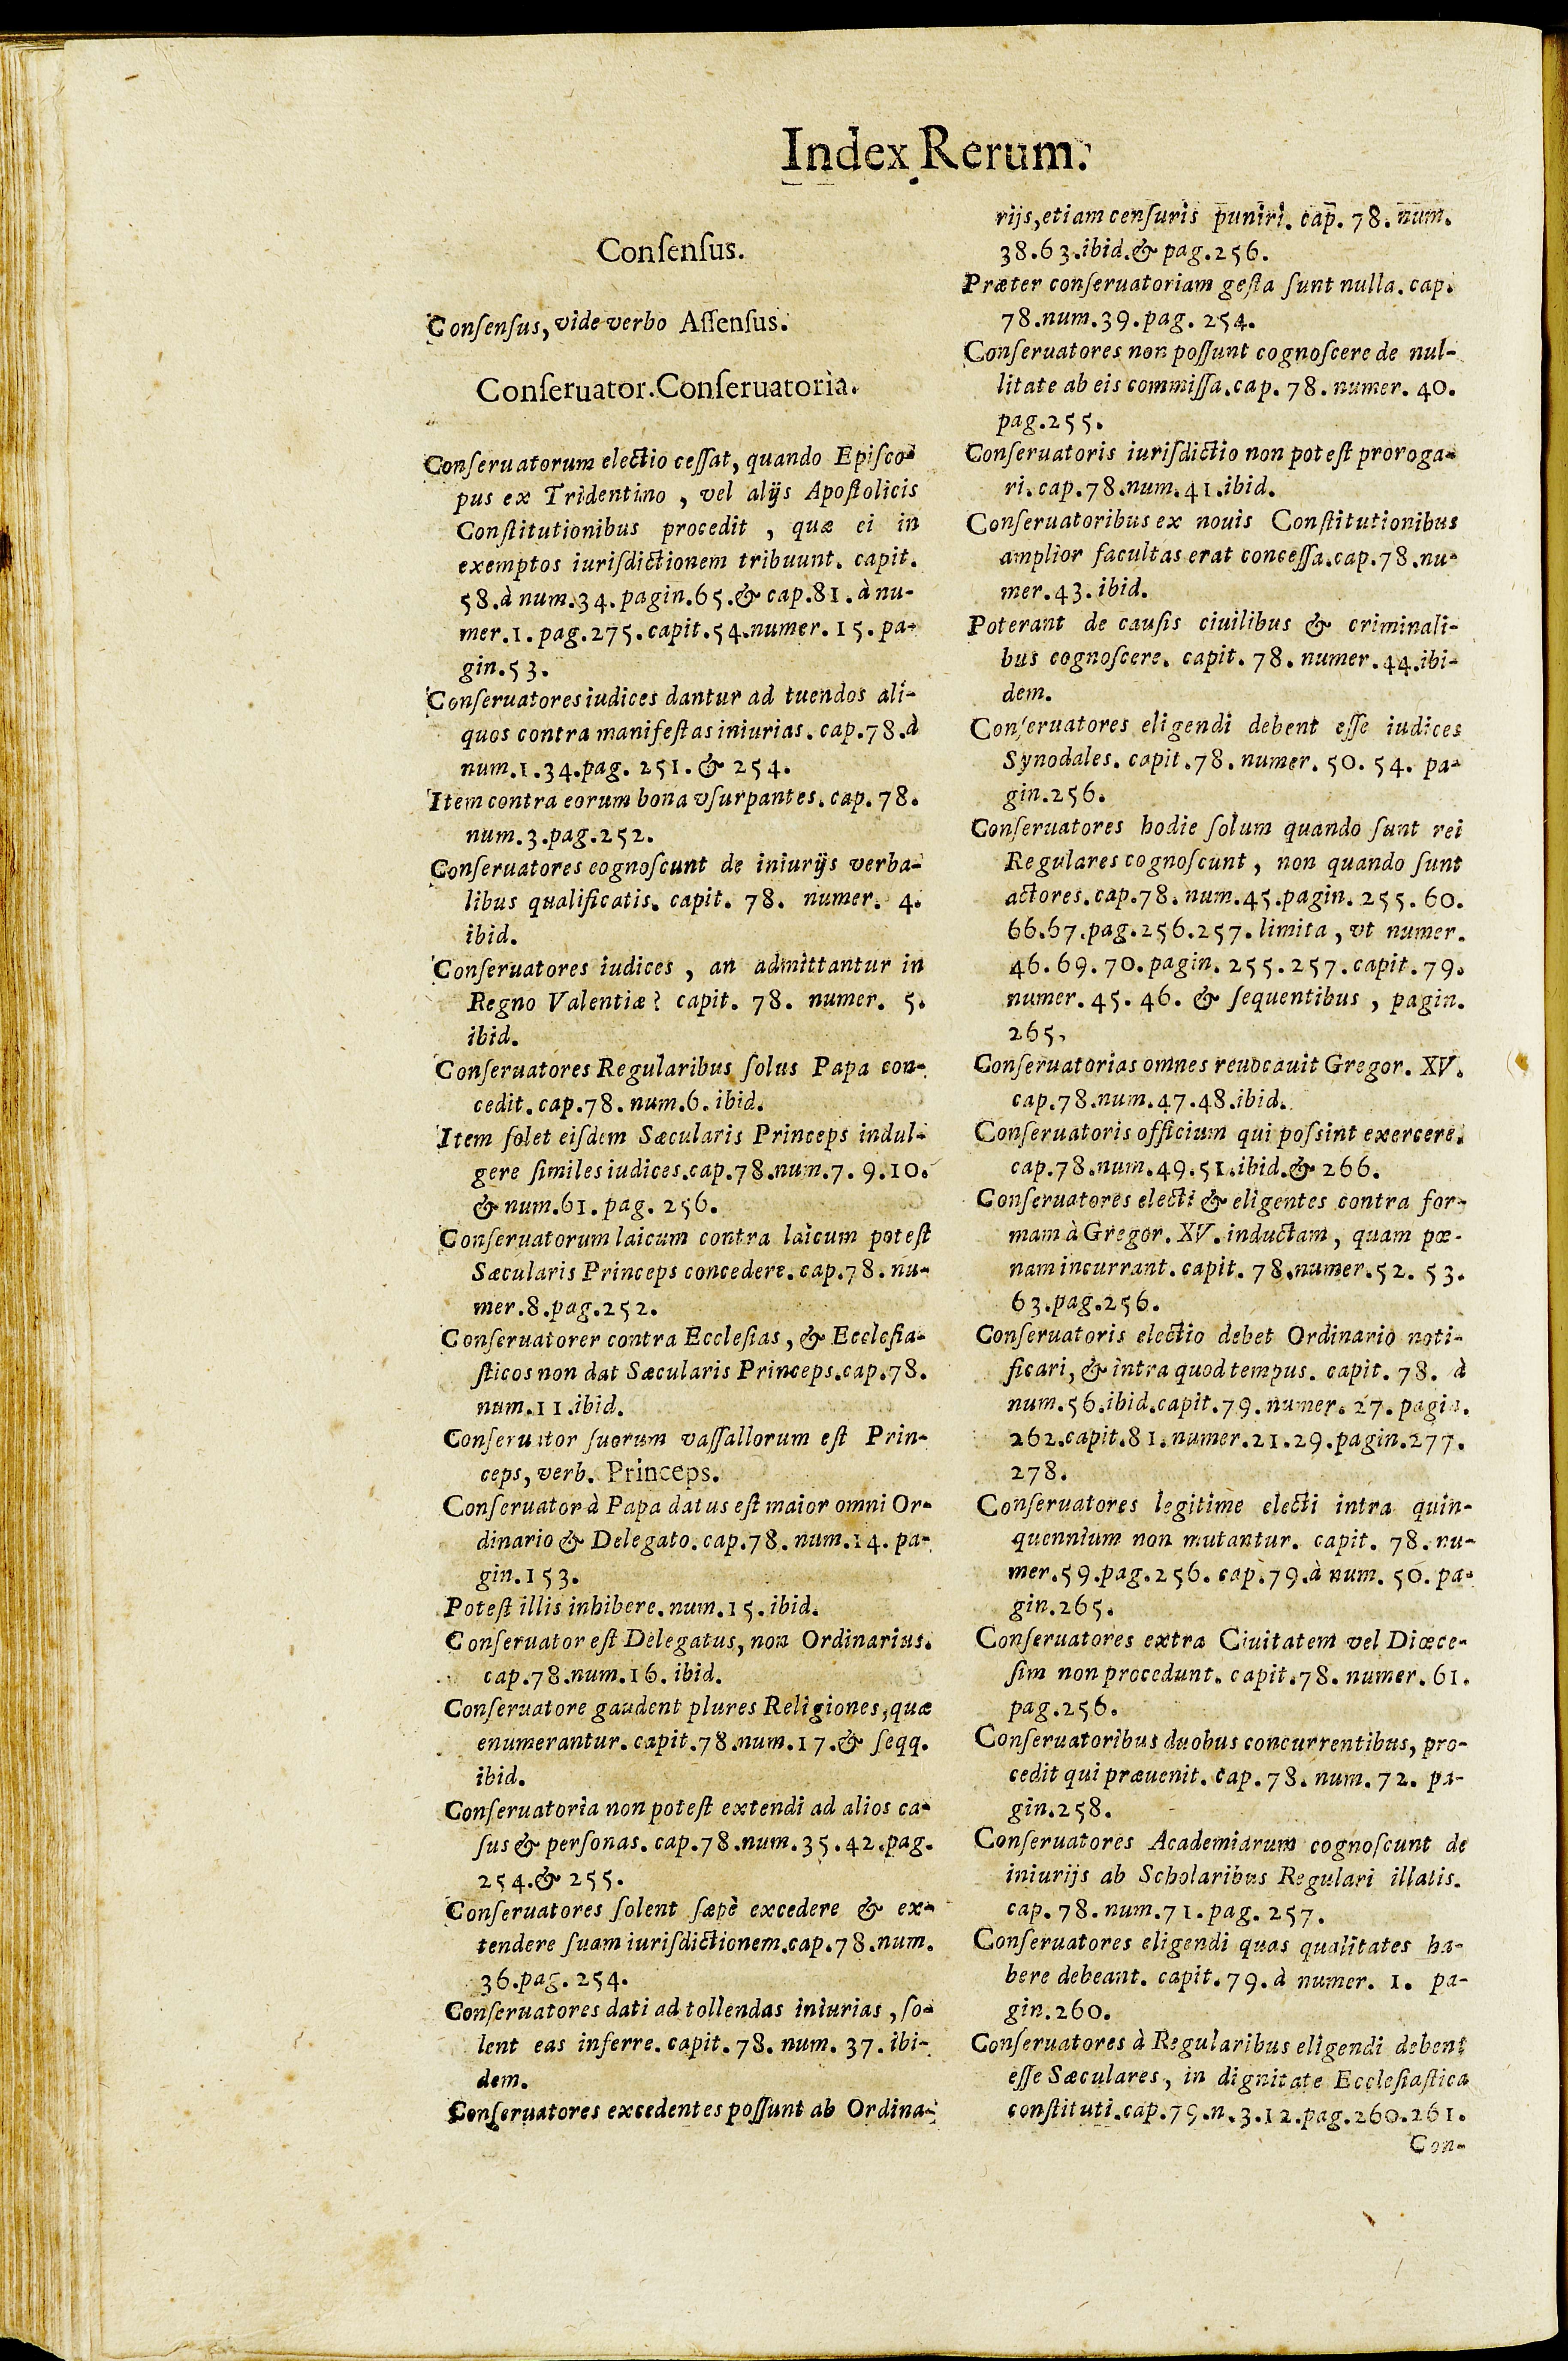 Index Rerum.
Conſenſus.
Conſenſus, vide verbo Aſſenſus.
Conſeruator. Conſeruatoria.
Conſeruatorum electio ceſſat, quando Epiſco-
pus ex Tridentino, vel alijs Apoſtolicis
Conſtitutionibus procedit, quæ ei in
exemptos iuriſdictionem tribuunt. capit.
58. à num. 34. pagin. 65. & cap. 81. à nu-
mer. 1. pag. 275. capit. 54. numer. 15. pa-
gin. 53.
Conſeruatores iudices dantur ad tuendos ali-
quos contra manifeſtas iniurias. cap. 78. à
num. 1. 34. pag. 251. & 254.
Item contra eorum bona vſurpantes. cap. 78.
num. 3. pag. 252.
Conſeruatores cognoſcunt de iniurijs verba-
libus qualificatis. capit. 78. numer. 4.
ibid.
Conſeruatores iudices, an admittantur in
Regno Valentiæ? capit. 78. numer. 5.
ibid.
Conſeruatores Regularibus ſolus Papa con-
cedit. cap. 78. num. 6. ibid.
Item ſolet eiſdem Sæcularis Princeps indul-
gere ſimiles iudices. cap. 78. num. 7. 9. 10.
& num. 61. pag. 256.
Conſeruatorum laicum contra laicum poteſt
Sæcularis Princeps concedere. cap. 78. nu-
mer. 8. pag. 252.
Conſeruatorer contra Eccleſias, & Eccleſia-
ſticos non dat Sæcularis Princeps. cap. 78.
num. 11. ibid.
Conſeruator ſuorum vaſſallorum eſt Prin-
ceps, verb. Princeps.
Conſeruator à Papa datus eſt maior omni Or-
dinario & Delegato. cap. 78. num. 14. pa-
gin. 153.
Poteſt illis inhibere. num. 15. ibid.
Conſeruator eſt Delegatus, non Ordinarius.
cap. 78. num. 16. ibid.
Conſeruatore gaudent plures Religiones, quæ
enumerantur. capit. 78. num. 17. & ſeqq.
ibid.
Conſeruatoria non poteſt extendi ad alios ca-
ſus & perſonas. cap. 78. num. 35. 42. pag.
254. & 255.
Conſeruatores ſolent ſæpè excedere & ex-
tendere ſuam iuriſdictionem. cap. 78. num.
36. pag. 254.
Conſeruatores dati ad tollendas iniurias, ſo-
lent eas inferre. capit. 78. num. 37. ibi-
dem.
Conſeruatores excedentes poſſunt ab Ordina-
rijs, etiam cenſuris puniri. cap. 78. num.
38. 63. ibid. & pag. 256.
Præter conſeruatoriam geſta ſunt nulla. cap.
78. num. 39. pag. 254.
Conſeruatores non poſſunt cognoſcere de nul-
litate ab eis commiſſa. cap. 78. numer. 40.
pag. 255.
Conſeruatoris iuriſdictio non poteſt proroga-
ri. cap. 78. num. 41. ibid.
Conſeruatoribus ex nouis Conſtitutionibus
amplior facultas erat conceſſa. cap. 78. nu-
mer. 43. ibid.
Poterant de cauſis ciuilibus & criminali-
bus cognoſcere. capit. 78. numer. 44. ibi-
dem.
Conſeruatores eligendi debent eſſe iudices
Synodales. capit. 78. numer. 50. 54. pa-
gin. 256.
Conſeruatores hodie ſolum quando ſunt rei
Regulares cognoſcunt, non quando ſunt
actores. cap. 78. num. 45. pagin. 255. 60.
66. 67. pag. 256. 257. limita, vt numer.
46. 69. 70. pagin. 255. 257. capit. 79.
numer. 45. 46. & ſequentibus, pagin.
265.
Conſeruatorias omnes reuocauit Gregor. XV.
cap. 78. num. 47. 48. ibid.
Conſeruatoris officium qui poſsint exercere.
cap. 78. num. 49. 51. ibid. & 266.
Conſeruatores electi & eligentes contra for-
mam à Gregor. XV. inductam, quam pœ-
nam incurrant. capit. 78. numer. 52. 53.
63. pag. 256.
Conſeruatoris electio debet Ordinario noti-
ficari, & intra quod tempus. capit. 78. à
num. 56. ibid. capit. 79. numer. 27. pagin.
262. capit. 81. numer. 21. 29. pagin. 277.
278.
Conſeruatores legitime electi intra quin-
quennium non mutantur. capit. 78. nu-
mer. 59. pag. 256. cap. 79. à num. 50. pa-
gin. 265.
Conſeruatores extra Ciuitatem vel Diœce-
ſim non procedunt. capit. 78. numer. 61.
pag. 256.
Conſeruatoribus duobus concurrentibus, pro-
cedit qui præuenit. cap. 78. num. 72. pa-
gin. 258.
Conſeruatores Academiarum cognoſcunt de
iniurijs ab Scholaribus Regulari illatis.
cap. 78. num. 71. pag. 257.
Conſeruatores eligendi quas qualitates ha-
bere debeant. capit. 79. à numer. 1. pa-
gin. 260.
Conſeruatores à Regularibus eligendi debent
eſſe Sæculares, in dignitate Eccleſiaſtica
conſtituti. cap. 79. n. 3. 12. pag. 260. 261.
Con-